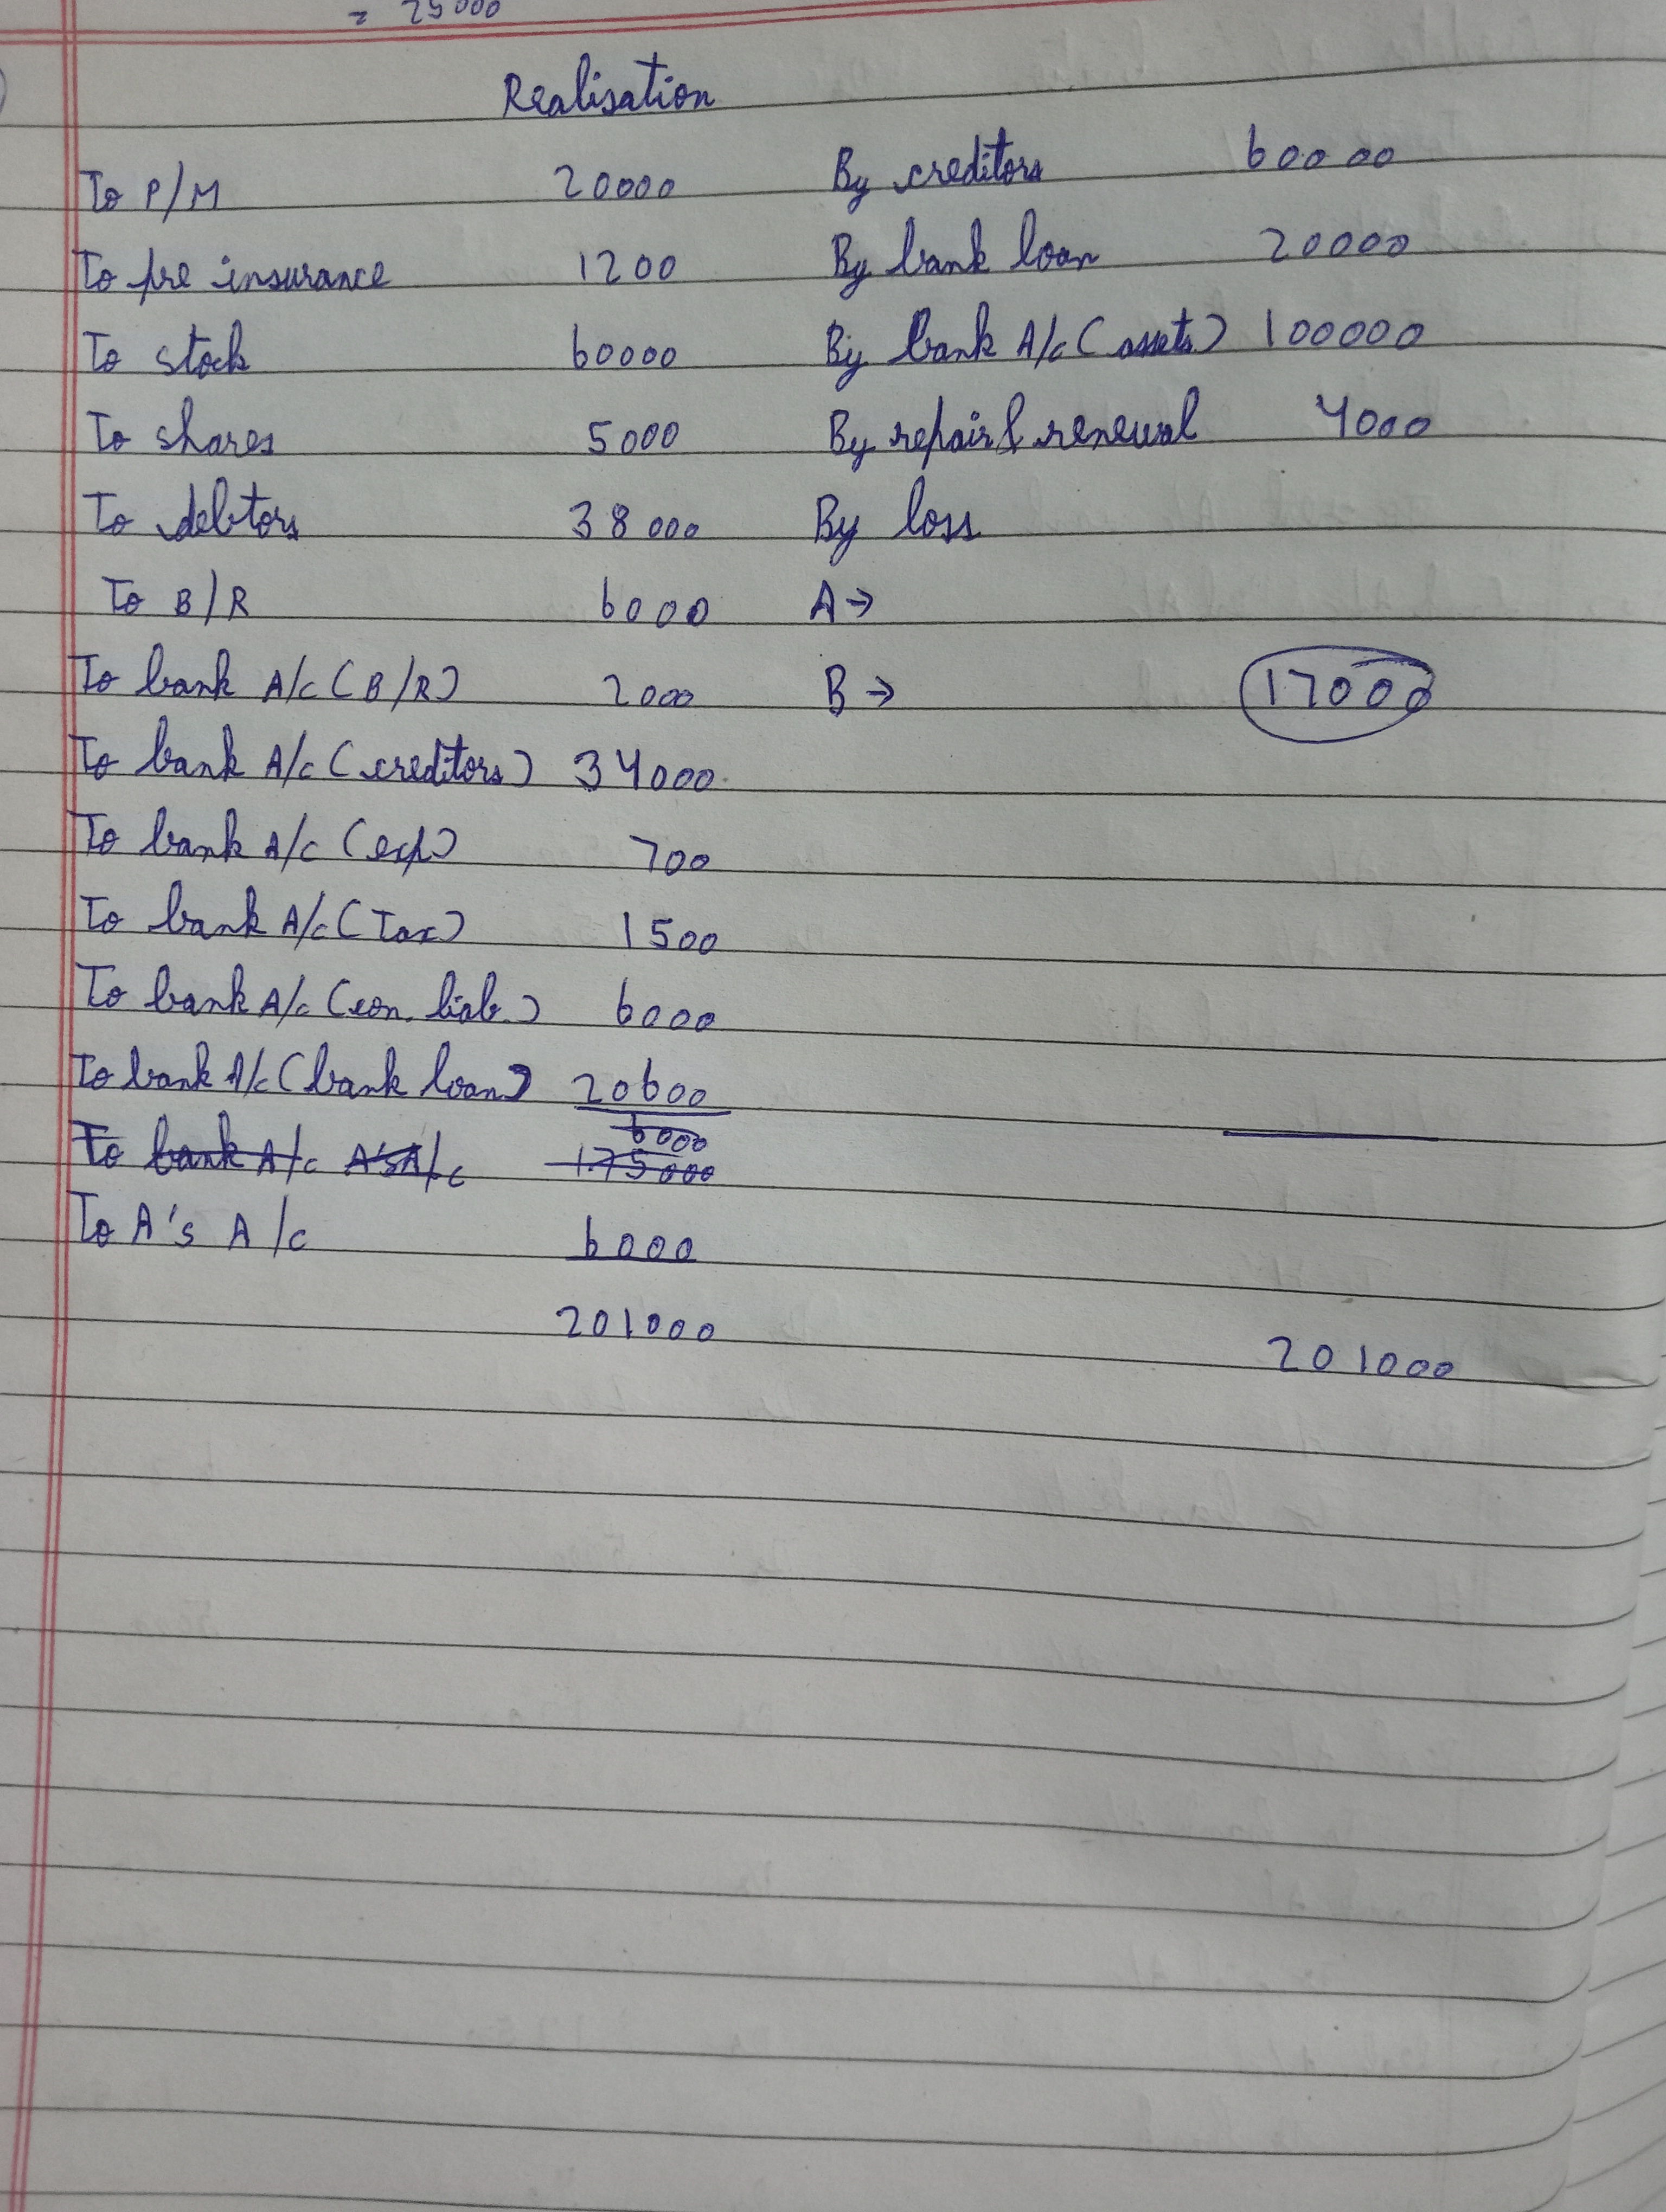 = 25000
Realisation
To P/M 20000 By creditors 60000
To pre insurance 1200 By bank loan 20000
To stock 60000 By bank A/c (assets) 100000
To shares 5000 By repair & renewal 4000
To debtors 38000 By loss
To B/R 6000 A→
To bank A/c (B/R) 2000 B→ 17000
To bank A/c (creditors) 34000
To bank A/c (exp) 700
To bank A/c (Tax) 1500
To bank A/c (con. liab.) 6000
To bank A/c (bank loan) 20600
6000
To bank A/c A's A/c 175000
To A's A/c 6000
201000 201000